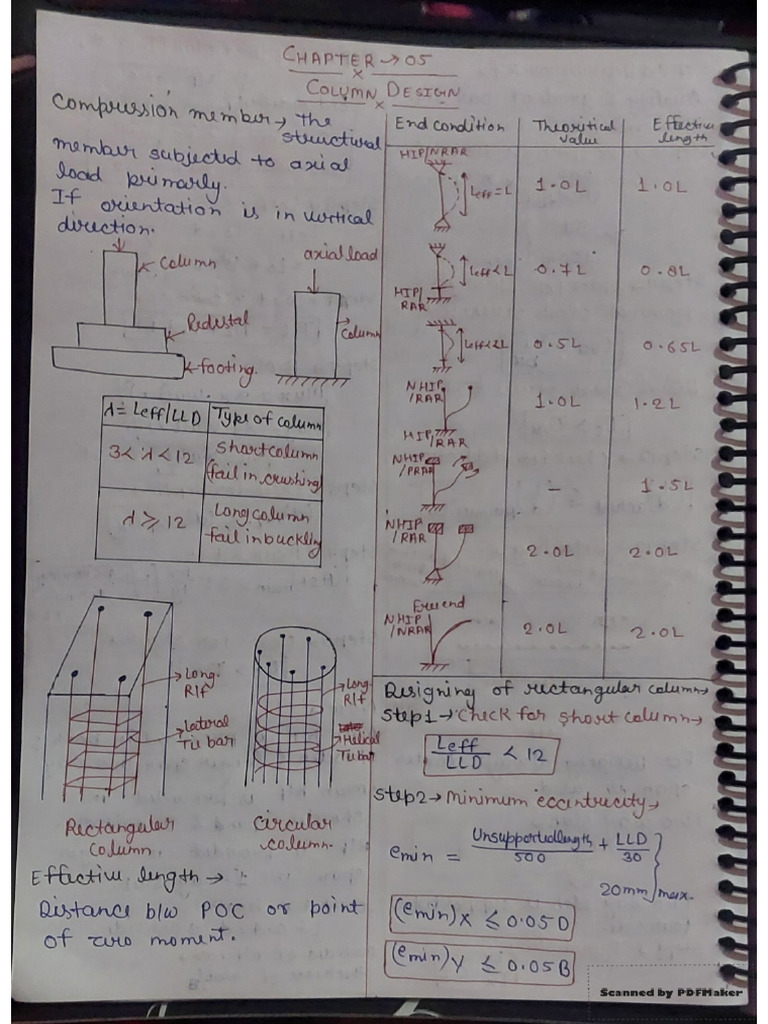 CHAPTER → 05
COLUMN DESIGN
Compression member → The
structural
member subjected to axial
load primarly.
If orientation is in vertical
direction.
Column
Pedistal
footing.
axial load
Column
λ = Leff/LLD Type of column
3 < λ < 12 Short column
fail in crushing
λ ≥ 12 Long column
fail in buckling
Long.
R/f
Lateral
Tie bar
Rectangular
Column.
Long.
R/f
Helical
Tie bar
Circular
column.
Effective length →
Distance b/w POC or point
of zero moment.
End condition Theoritical value Effective length
HIP/NRAR
Leff = L 1.0L 1.0L
Leff < L 0.7L 0.8L
HIP/
RAR
Leff < 2L 0.5L 0.65L
NHIP
/RAR 1.0L 1.2L
HIP/RAR
NHIP
/PRAR – 1.5L
NHIP
/RAR 2.0L 2.0L
Free end
NHIP
/NRAR 2.0L 2.0L
Designing of rectangular column →
Step 1 → Check for short column →
Leff/LLD < 12
Step 2 → Minimum eccentricity →
emin = Unsupported length/500 + LLD/30
20mm } max.
(emin)x ≤ 0.05D
(emin)y ≤ 0.05B
Scanned by PDFMaker